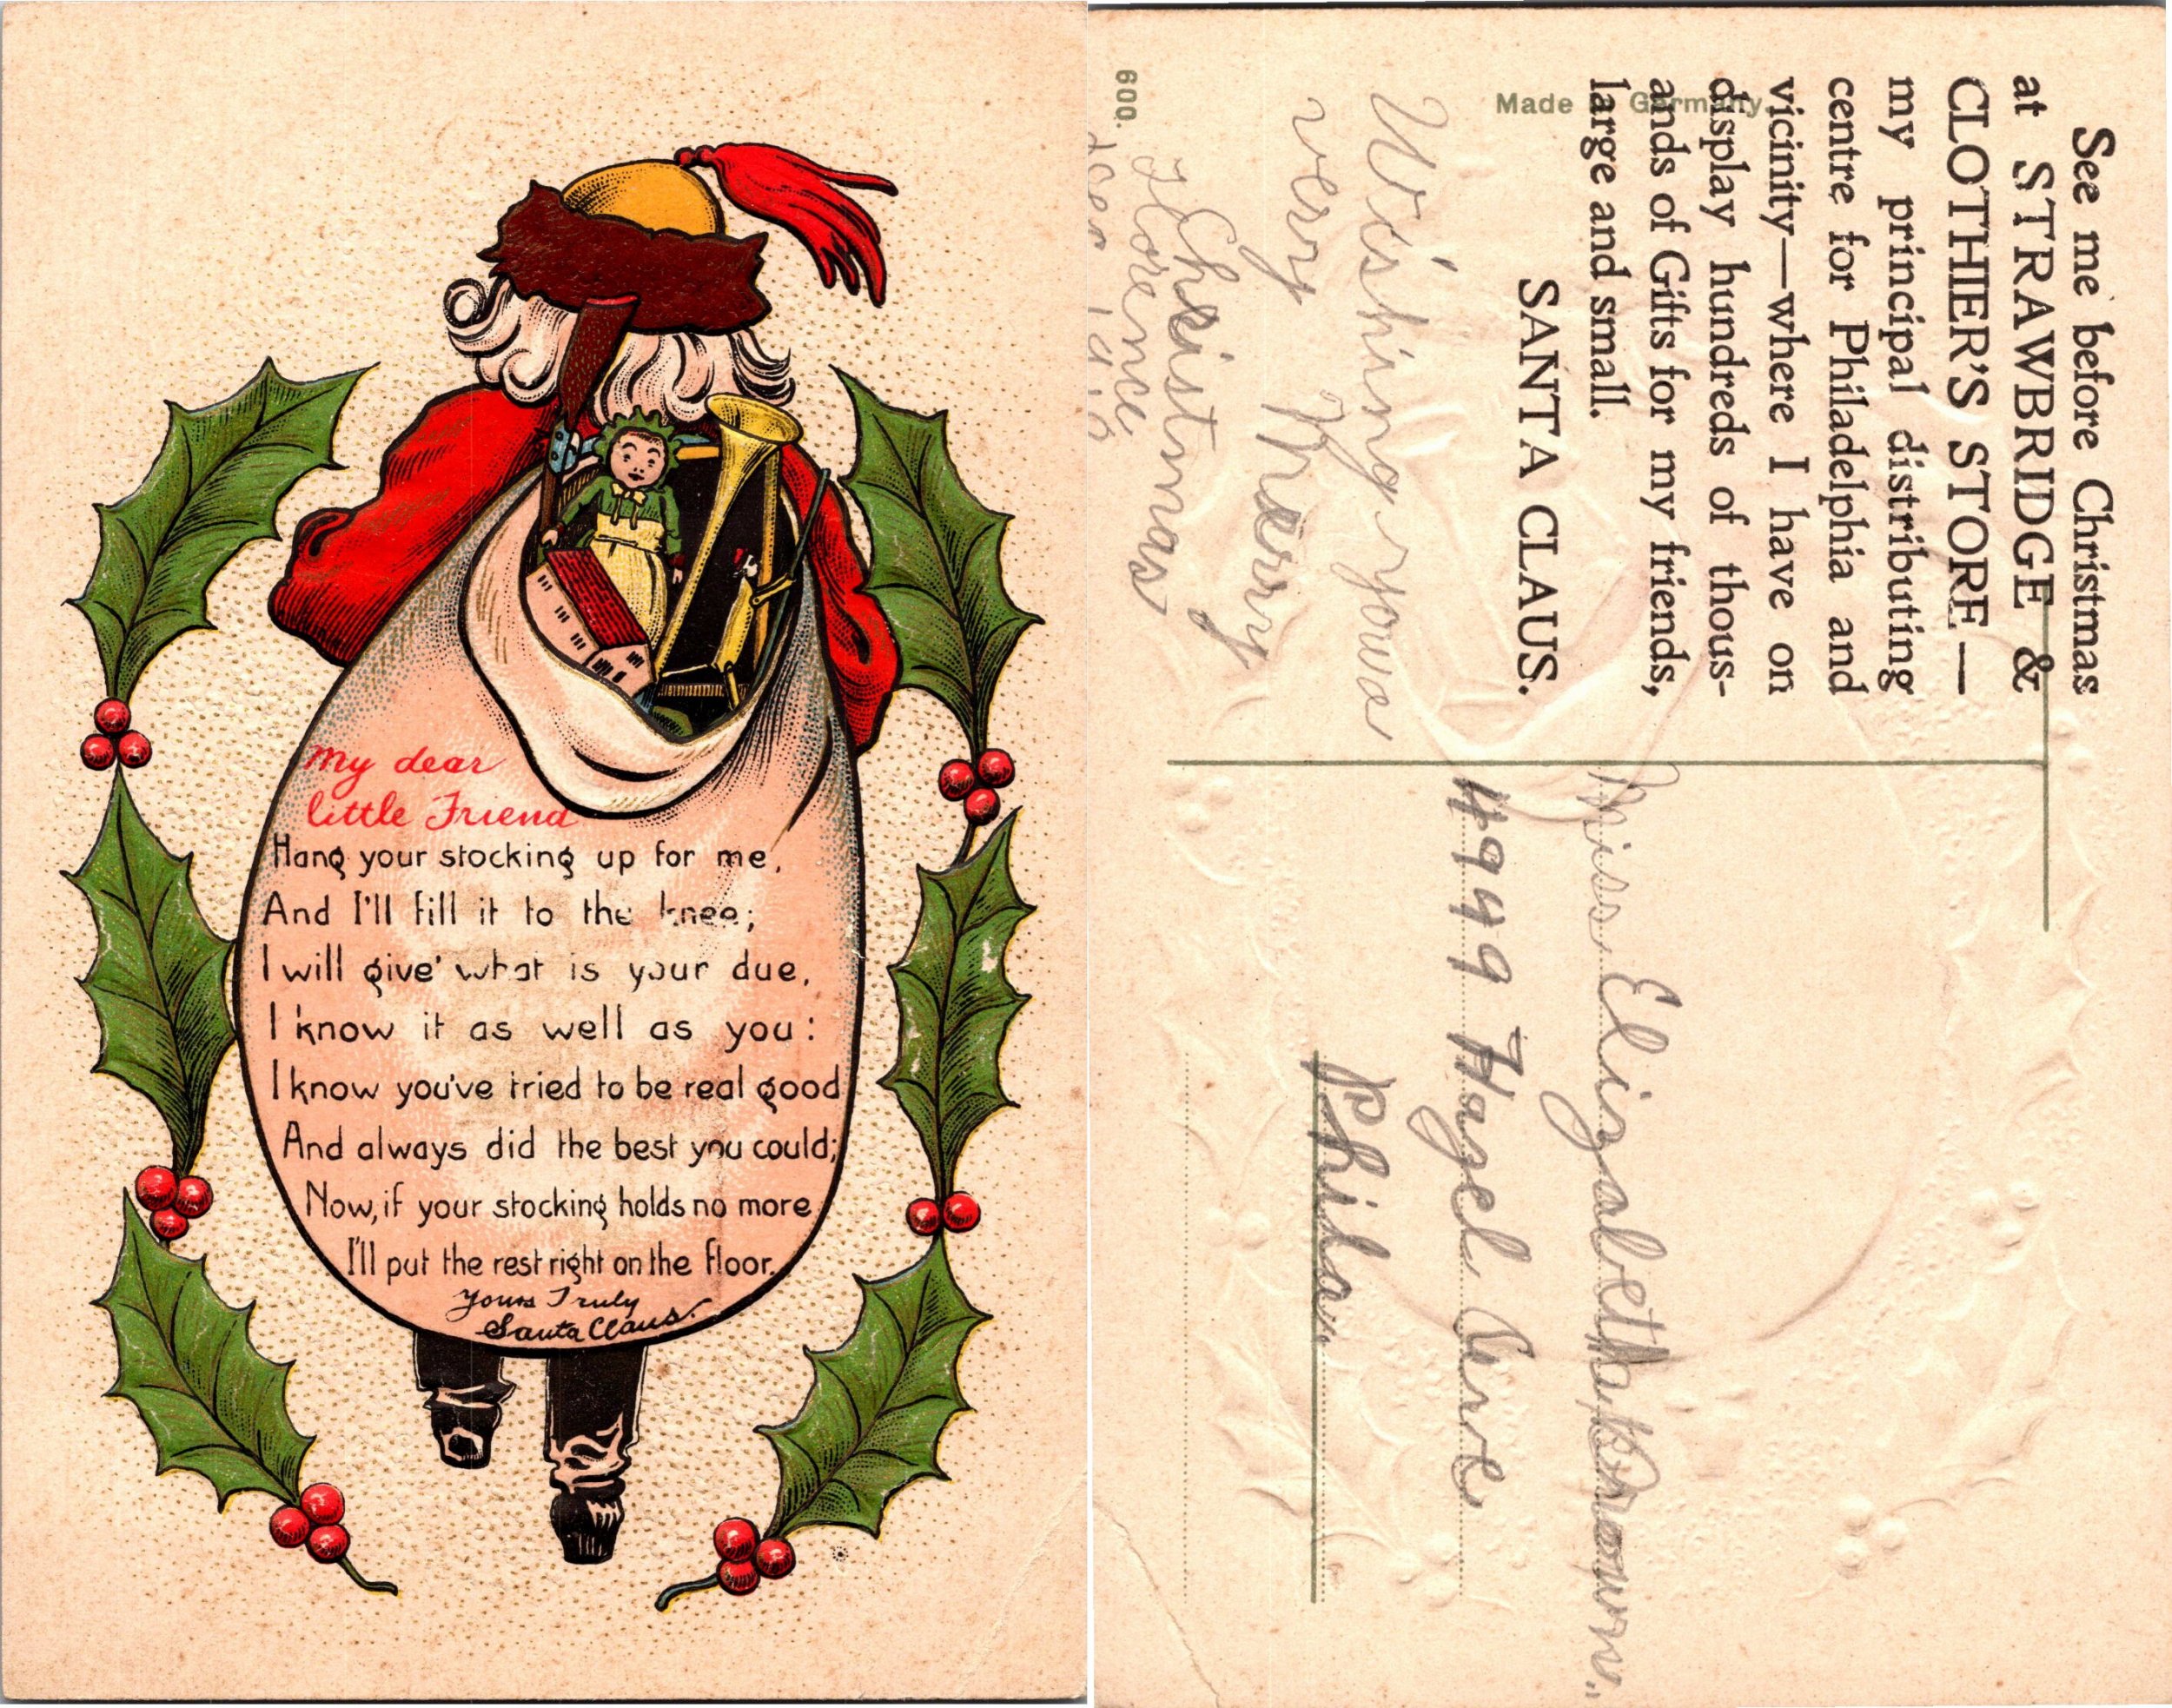 My dear
little Friend
Hang your stocking up for me,
And I'll fill it to the knee;
I will give what is your due,
I know it as well as you:
I know you've tried to be real good
And always did the best you could;
Now, if your stocking holds no more
I'll put the rest right on the floor.
Yours Truly
Santa Claus.
See me before Christmas
at STRAWBRIDGE &
CLOTHIER'S STORE—
my principal distributing
centre for Philadelphia and
vicinity—where I have on
display hundreds of thous-
ands of Gifts for my friends,
large and small.
SANTA CLAUS.
Made in Germany.
600.
Wishing you a
very Merry
Christmas
Florence
Miss Elizabeth Brown.
4949 Hazel Ave
Phila.